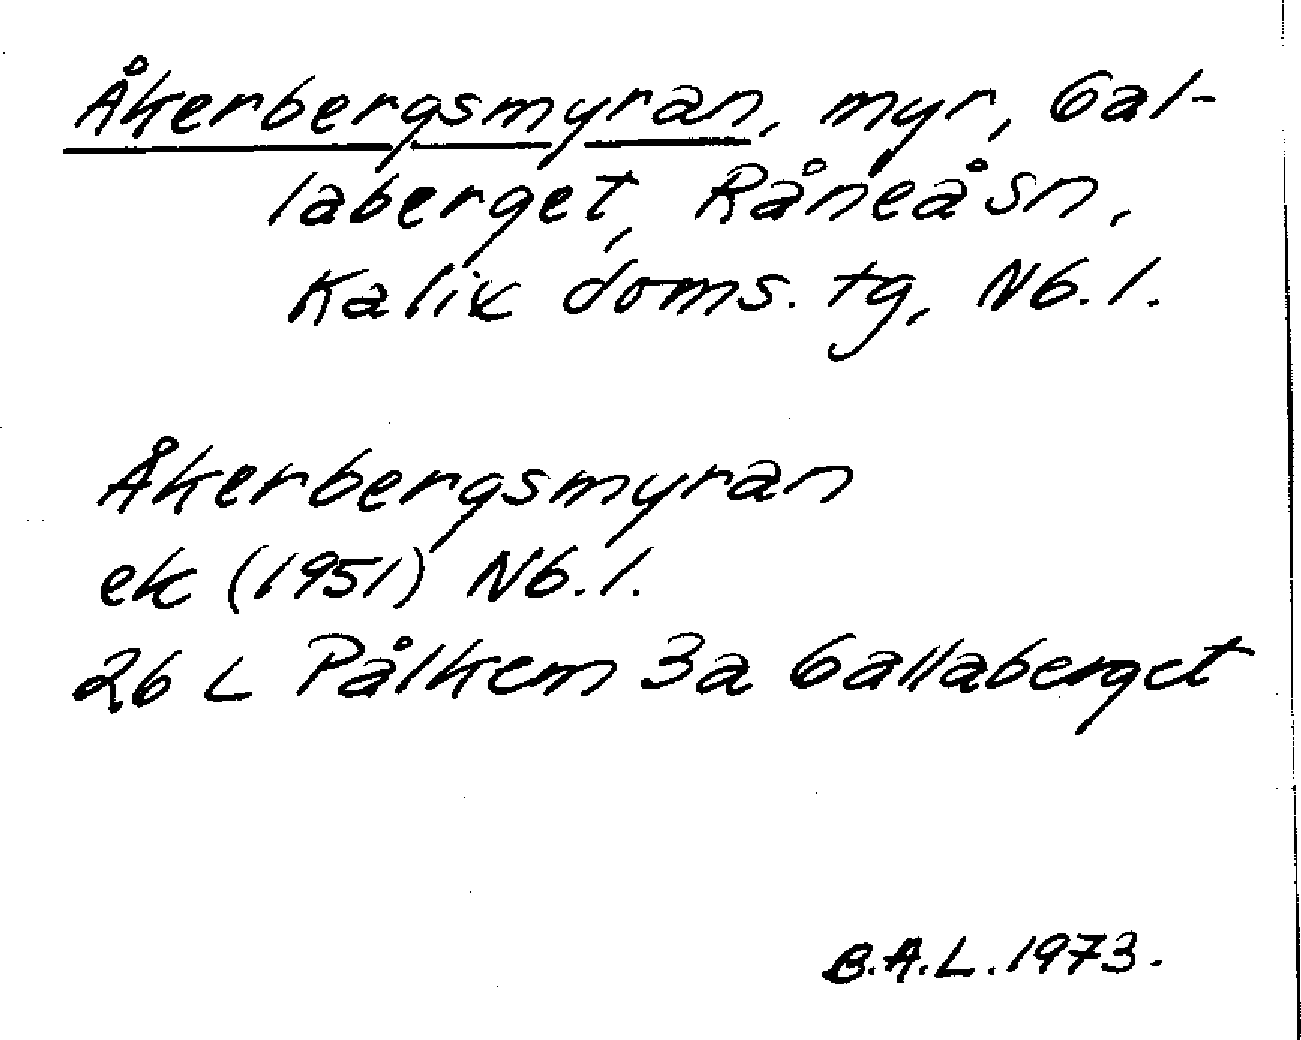 Åkerbergsmyran, myr, Gal-
laberget, Råneå sn,
Kalix doms. tg, Nb. l.
Åkerbergsmyran
ek (1951) Nb. l.
26 L Pålkem 3a Gallaberget
B.A.L. 1973.